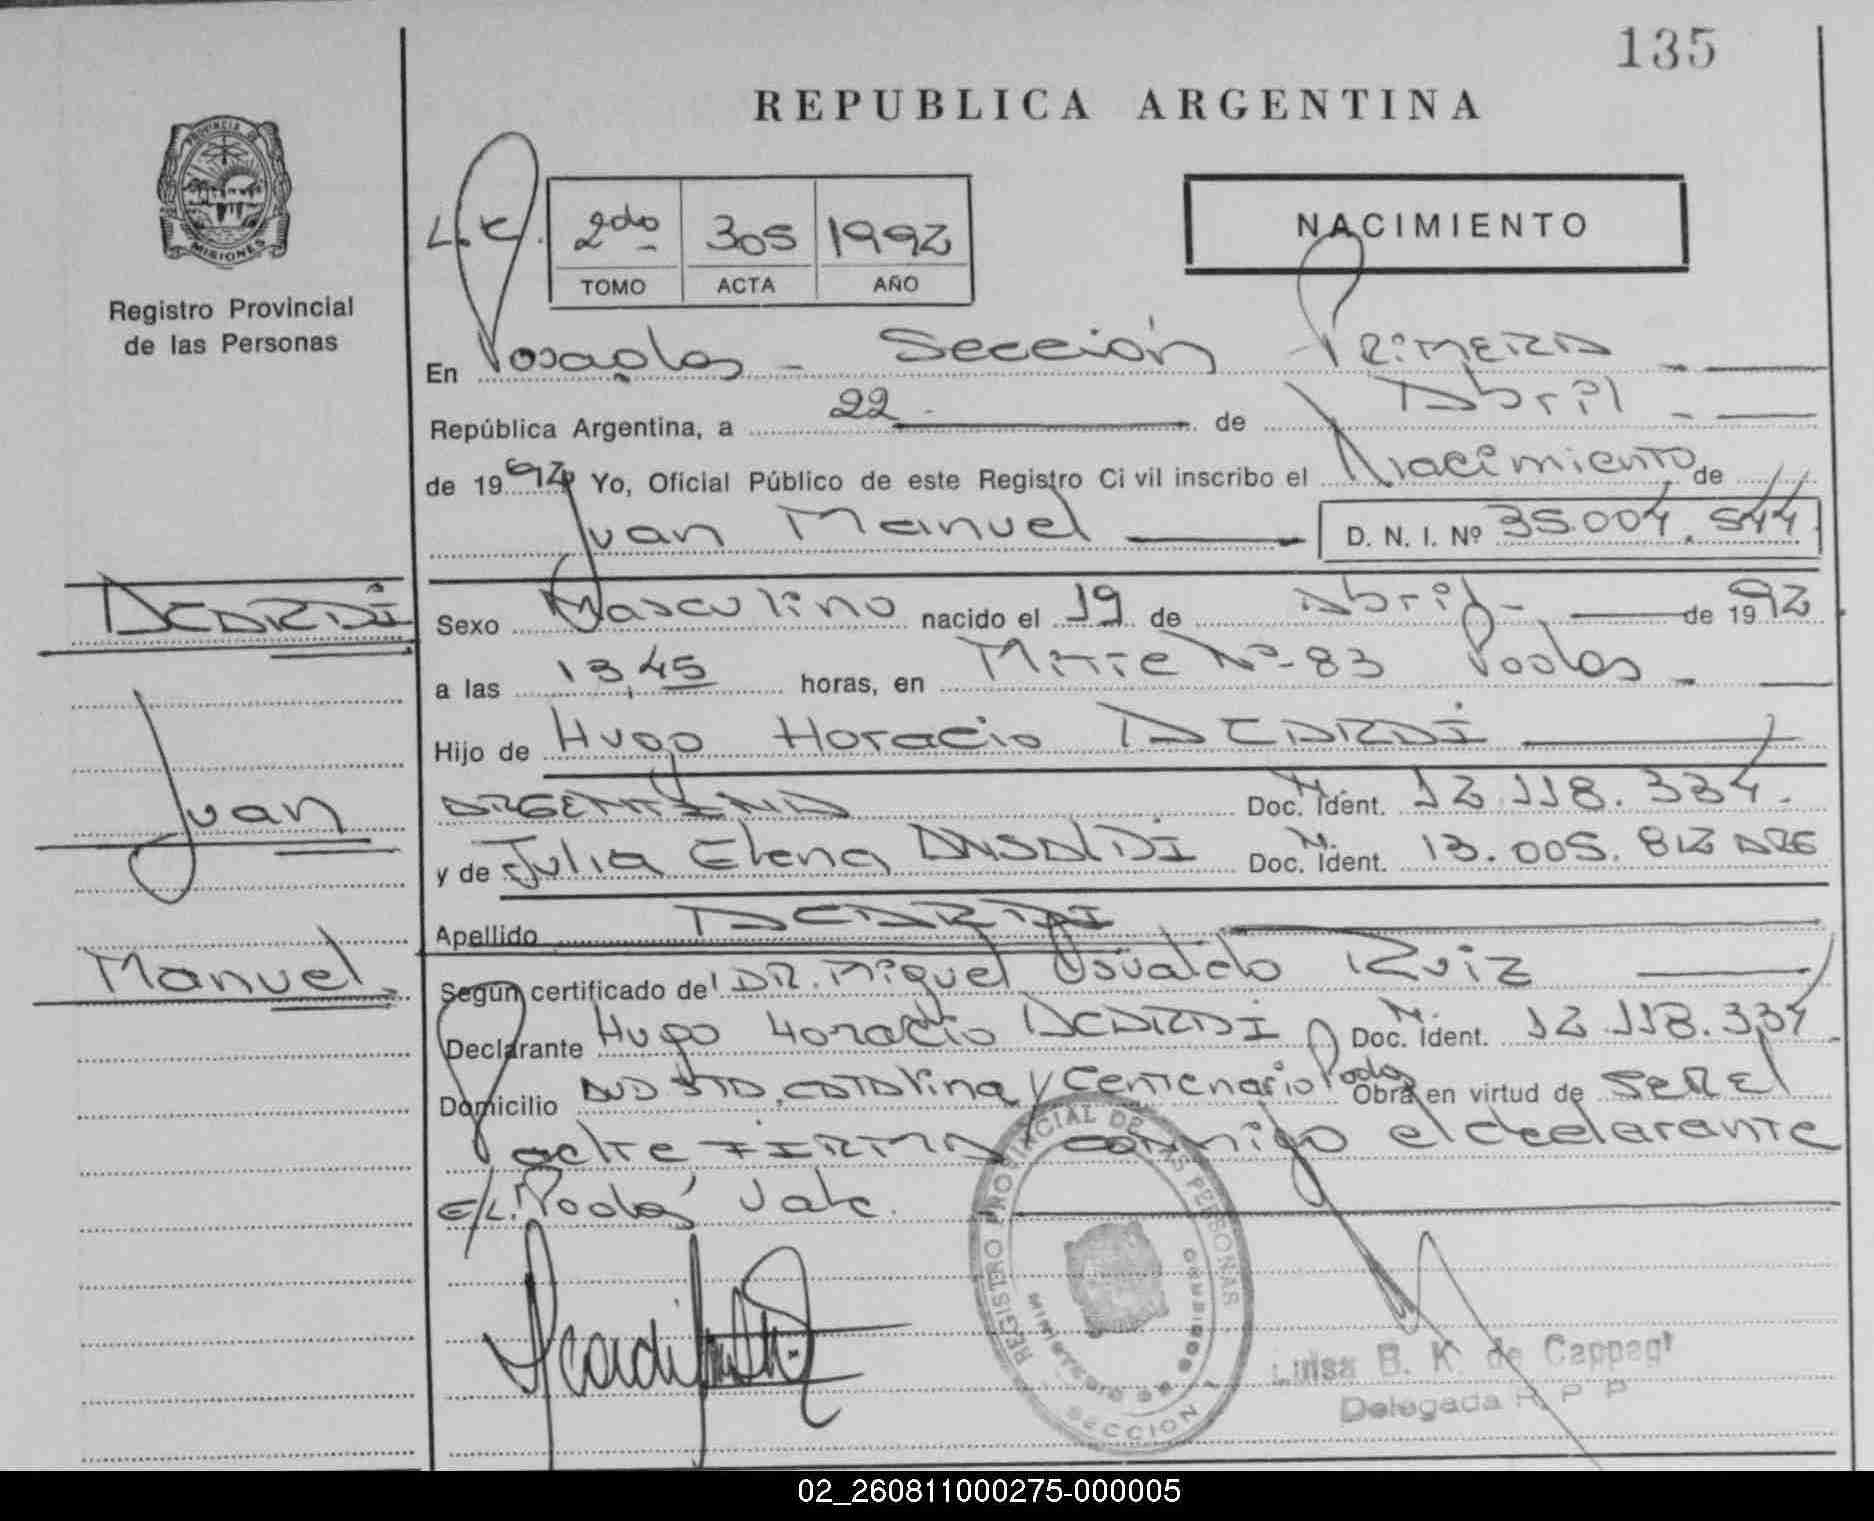 135
REPUBLICA ARGENTINA
PROVINCIA DE
MISIONES
Registro Provincial
de las Personas
2do 305 1992
TOMO ACTA AÑO
NACIMIENTO
En Posadas - Sección Primera -
República Argentina, a 22 de Abril -
de 1992 Yo, Oficial Público de este Registro Civil inscribo el Nacimiento de
Juan Manuel D. N. I. Nº 35.004.544
Sexo Masculino nacido el 19 de Abril - de 1992
a las 13,45 horas, en Mitre Nº 83 Pdas -
Hijo de Hugo Horacio ACARDI
ARGENTINA Doc. Ident. 12.118.334.
y de Julia Elena ANSALDI Doc. Ident. 13.005.812 ARG
Apellido ACARDI
Según certificado de DR. Miguel Osvaldo Ruiz
Declarante Hugo Horacio ACARDI Doc. Ident. 12.118.334
Domicilio AVD STA. CATALINA y Centenario Pdas Obra en virtud de SER El
padre FIRMA conmigo el declarante
E/L. Pdas Vale.
ACARDI
Juan
Manuel
REGISTRO PROVINCIAL DE LAS PERSONAS
MINISTERIO DE GOBIERNO
SECCION 1
Luisa B. K. de
Delegada R P P
02_260811000275-000005